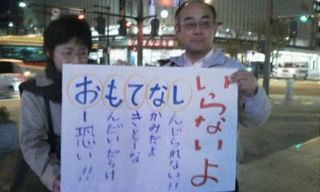 おー恐い!!
もんだいだらけ
てきとーな
なかみだよ
しんじられない!!
いらないよ